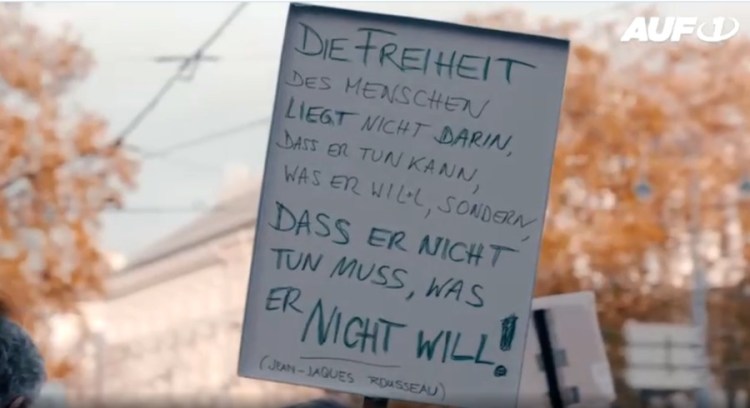 AUF1
DIE FREIHEIT
DES MENSCHEN
LIEGT NICHT DARIN,
DASS ER TUN KANN,
WAS ER WILL, SONDERN,
DASS ER NICHT
TUN MUSS, WAS
ER NICHT WILL!
(JEAN-JAQUES ROUSSEAU)